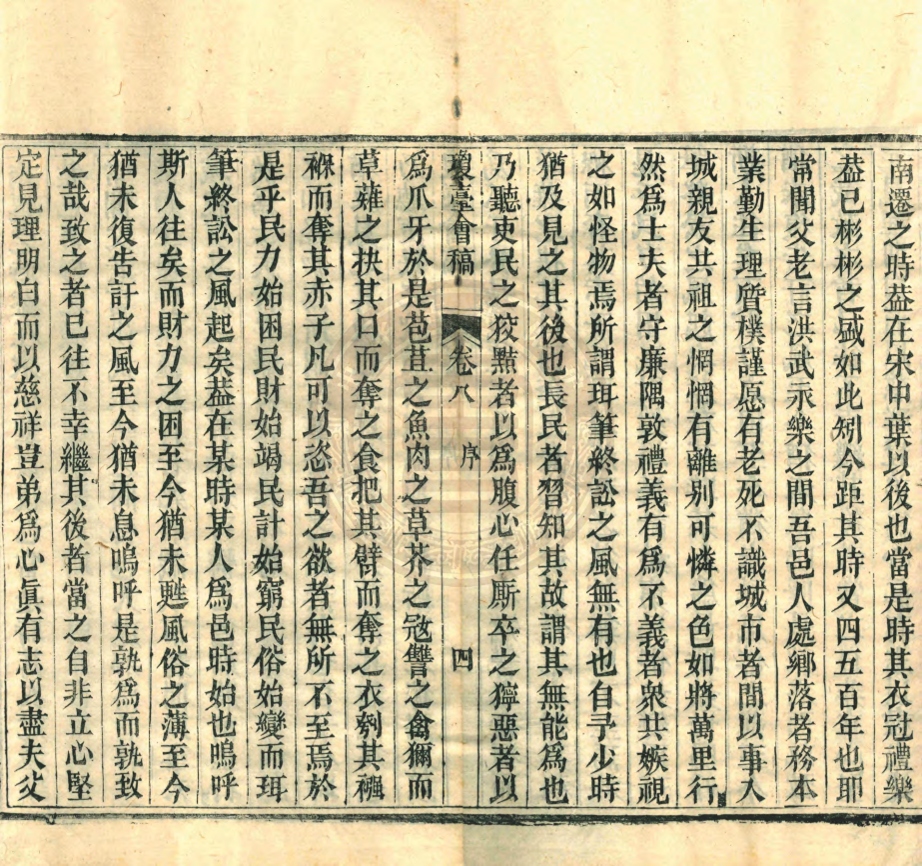 南遷之時葢在宋中葉以後也當是時其衣冠禮樂
葢已彬彬之盛如此矧今距其時又四五百年也耶
常聞父老言洪武永樂之間吾邑人處鄉落者務本
業勤生理質樸謹愿有老死不識城市者間以事入
城親友共祖之惘惘有離别可憐之色如將萬里行
然爲士夫者守廉隅敦禮義有爲不義者衆共嫉視
之如怪物焉所謂珥筆終訟之風無有也自予少時
猶及見之其後也長民者習知其故謂其無能爲也
乃聽吏民之狡黠者以爲腹心任厮卒之獰惡者以
瓊臺會稿 卷八 序 四
爲爪牙於是苞苴之魚肉之草芥之冦讐之禽獮而
草薙之抉其口而奪之食把其臂而奪之衣剝其襁
褓而奪其赤子凡可以恣吾之欲者無所不至焉於
是乎民力始困民財始竭民計始窮民俗始變而珥
筆終訟之風起矣葢在某時某人爲邑時始也嗚呼
斯人往矣而財力之困至今猶未甦風俗之薄至今
猶未復告訐之風至今猶未息嗚呼是孰爲而孰致
之哉致之者巳往不幸繼其後者當之自非立心堅
定見理明白而以慈祥豈弟爲心眞有志以盡夫父